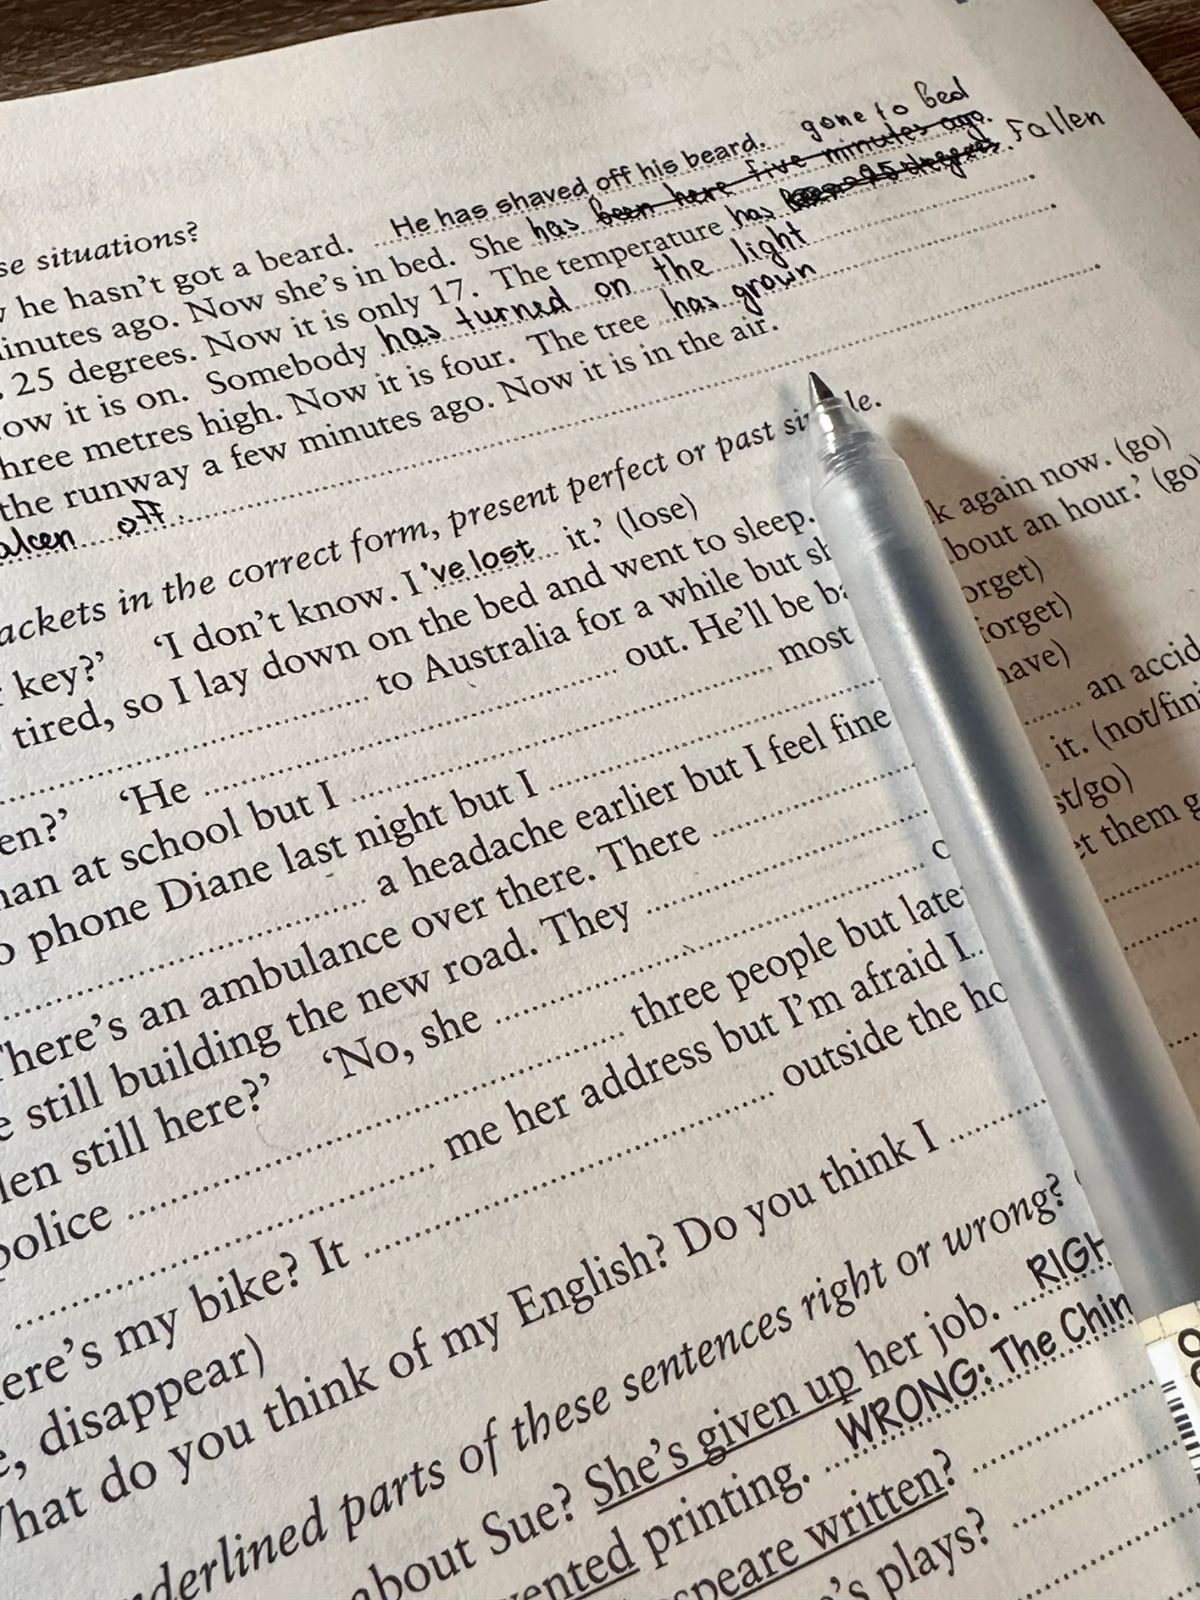 se situations?
he hasn't got a beard. He has shaved off his beard. gone to bed
inutes ago. Now she's in bed. She has been here five minutes ago.
25 degrees. Now it is only 17. The temperature has 25 degrees. Fallen
ow it is on. Somebody has turned on the light
hree metres high. Now it is four. The tree has grown
the runway a few minutes ago. Now it is in the air.
aken off.
ackets in the correct form, present perfect or past si le.
key?' 'I don't know. I 've lost it.' (lose)
tired, so I lay down on the bed and went to sleep.
to Australia for a while but sh k again now. (go)
en?' 'He out. He'll be ba bout an hour.' (go)
man at school but I most orget)
o phone Diane last night but I forget)
a headache earlier but I feel fine have)
There's an ambulance over there. There an accid
e still building the new road. They it. (not/fini
len still here?' 'No, she o st/go)
police three people but late et them g
me her address but I'm afraid I
ere's my bike? It outside the ho
e, disappear)
What do you think of my English? Do you think I
nderlined parts of these sentences right or wrong?
about Sue? She's given up her job. RIGH
vented printing. WRONG: The Chin
speare written?
e's plays?